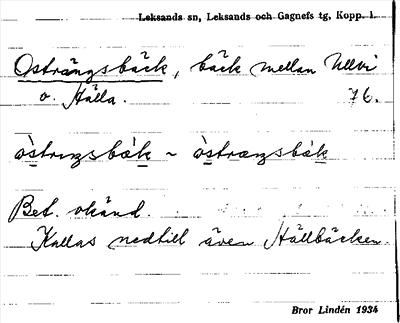 Leksands sn, Leksands och Gagnefs tg, Kopp. l.
Osträngsbäck, bäck mellan Ullvi
o. Hälla. 76.
òstrængsbȧk ~ òstrængsbȧk
Bet. okänd.
Kallas nedtill även Hällbäcken.
Bror Lindén 1934